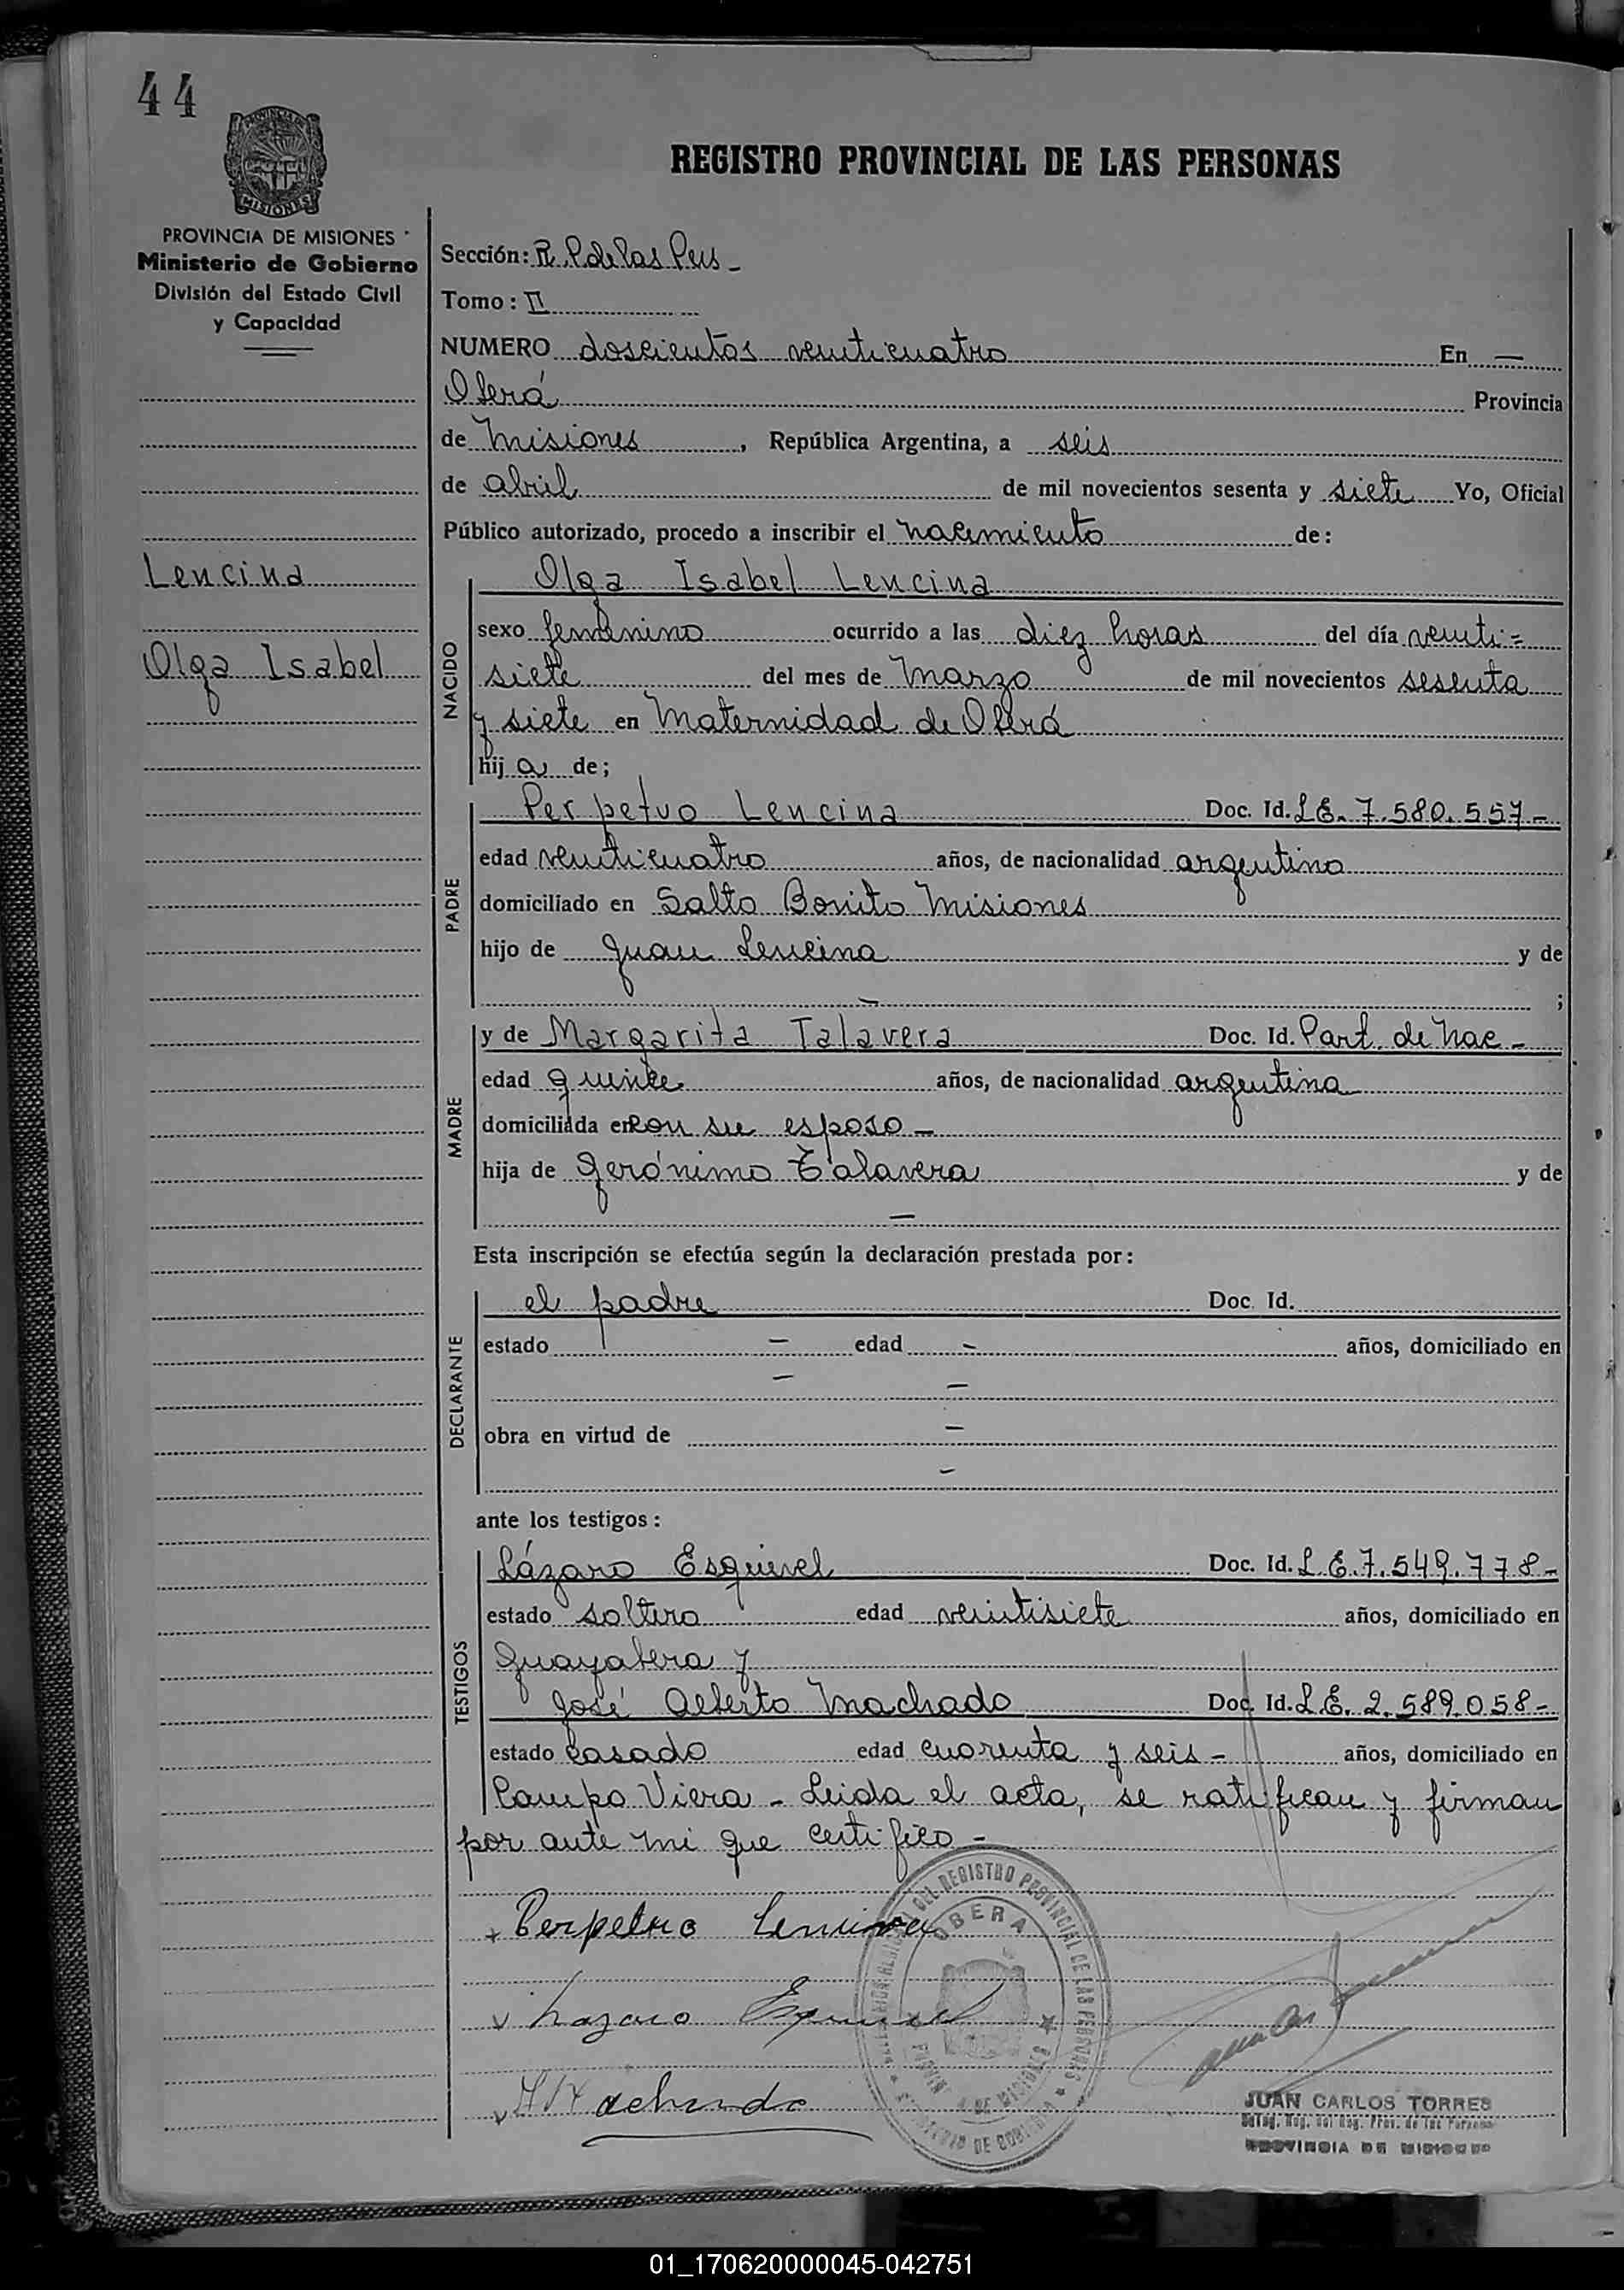 44
PROVINCIA DE MISIONES
MISIONES
PROVINCIA DE MISIONES
Ministerio de Gobierno
División del Estado Civil
y Capacidad
Lencina
Olga Isabel
REGISTRO PROVINCIAL DE LAS PERSONAS
Sección: R. P. de las Pers -
Tomo: II
NUMERO doscientos veinticuatro En —
Oberá Provincia
de Misiones, República Argentina, a seis
de abril de mil novecientos sesenta y siete Yo, Oficial
Público autorizado, procedo a inscribir el nacimiento de:
NACIDO
Olga Isabel Lencina
sexo femenino ocurrido a las diez horas del día veinti=
siete del mes de Marzo de mil novecientos sesenta
y siete en Maternidad de Oberá
hija de;
PADRE
Perpetuo Lencina Doc. Id. L.E. 7.580.557-
edad veinticuatro años, de nacionalidad argentino
domiciliado en Salto Bonito Misiones
hijo de Juan Lencina y de
— ;
MADRE
y de Margarita Talavera Doc. Id. Part. de Nac -
edad quince años, de nacionalidad argentina
domiciliada en con su esposo -
hija de Gerónimo Talavera y de
—
Esta inscripción se efectúa según la declaración prestada por:
DECLARANTE
el padre Doc. Id.
estado — edad — años, domiciliado en
— —
obra en virtud de —
—
ante los testigos:
TESTIGOS
Lázaro Esquivel Doc. Id. L.E. 7.549.778-
estado soltero edad veintisiete años, domiciliado en
Guayabera y
José Alberto Machado Doc. Id. L.E. 2.589.058-
estado casado edad cuarenta y seis - años, domiciliado en
Campo Viera - Leida el acta, se ratifican y firman
por ante mi que certifico -
Perpetuo Lencina
Lazaro Esquivel
Machado
DEL REGISTRO PROVINCIAL DE LAS PERSONAS
OBERA
JUAN CARLOS TORRES
PROVINCIA DE MISIONES
01_170620000045-042751